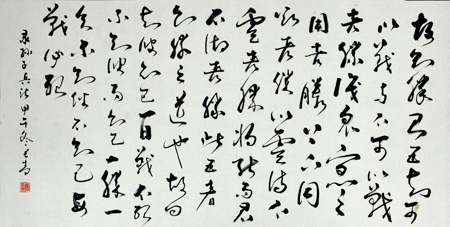 故知勝有五知可
以戰與不可以戰
者勝識衆寡之
用者勝上下同
欲者勝以虞待不
虞者勝將能而君
不御者勝此五者
知勝之道也故曰
知彼知己百戰不殆
不知彼而知己一勝一
負不知彼不知己每
戰必殆
录孙子兵法甲午冬